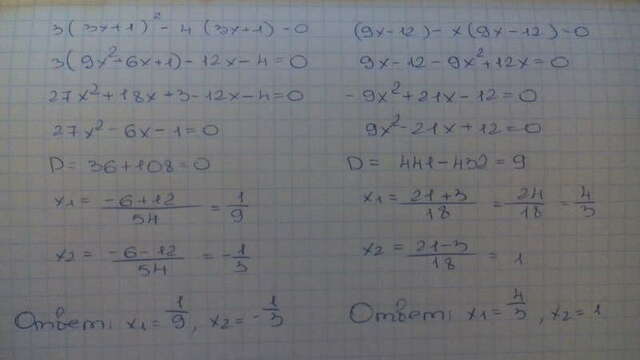 3(3x+1)² - 4(3x+1) = 0
3(9x²+6x+1) - 12x - 4 = 0
27x² + 18x + 3 - 12x - 4 = 0
27x² - 6x - 1 = 0
D = 36 + 108 = 0
x₁ = (-6+12)/54 = 1/9
x₂ = (-6-12)/54 = -1/3
Ответ: x₁ = 1/9, x₂ = -1/3
(9x-12) - x(9x-12) = 0
9x - 12 - 9x² + 12x = 0
-9x² + 21x - 12 = 0
9x² - 21x + 12 = 0
D = 441 - 432 = 9
x₁ = (21+3)/18 = 24/18 = 4/3
x₂ = (21-3)/18 = 1
Ответ: x₁ = 4/3, x₂ = 1